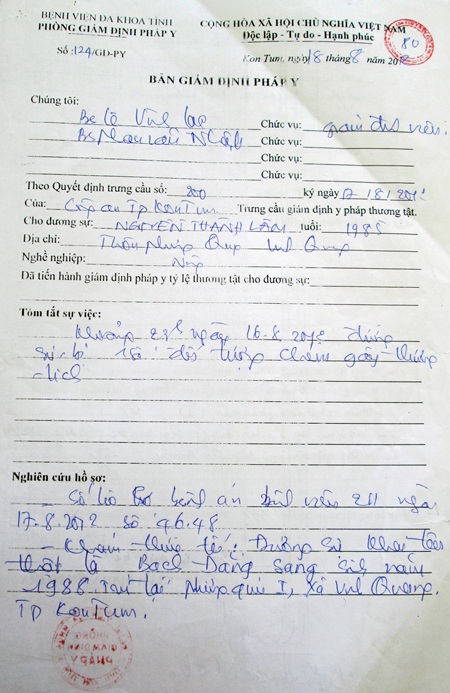 BỆNH VIỆN ĐA KHOA TỈNH
PHÒNG GIÁM ĐỊNH PHÁP Y
Số :124/GD-PY
CỘNG HÒA XÃ HỘI CHỦ NGHĨA VIỆT NAM
Độc lập - Tự do - Hạnh phúc
80
Kon Tum, ngày 18 tháng 8 năm 2012
BẢN GIÁM ĐỊNH PHÁP Y
Chúng tôi:
Bs Lê Vinh Chức vụ: giám định viên
Bs Chức vụ:
Chức vụ:
Chức vụ:
Theo Quyết định trưng cầu số: 200 ký ngày 17/8/2012
Của: Công an Tp KonTum Trưng cầu giám định y pháp thương tật.
Cho đương sự: NGUYỄN THÀNH LÂM tuổi: 1985
Địa chỉ: Thôn Phương Quý Vinh Quang
Nghề nghiệp: Nông
Đã tiến hành giám định pháp y tỷ lệ thương tật cho đương sự:
Tóm tắt sự việc:
Khoảng 23h ngày 16.8.2012 đương
sự bị số đối tượng chém gây thương
tích
Nghiên cứu hồ sơ:
Số hồ sơ bệnh án bệnh viện 211 ngày
17.8.2012 số 4648
- Khám thực tế: Đương sự khai tên
thật là Bạch Đăng Sang sinh năm
1988 trú tại Phương quí I, xã Vinh Quang.
TP KonTum.
PHÒNG
GIÁM ĐỊNH
PHÁP Y